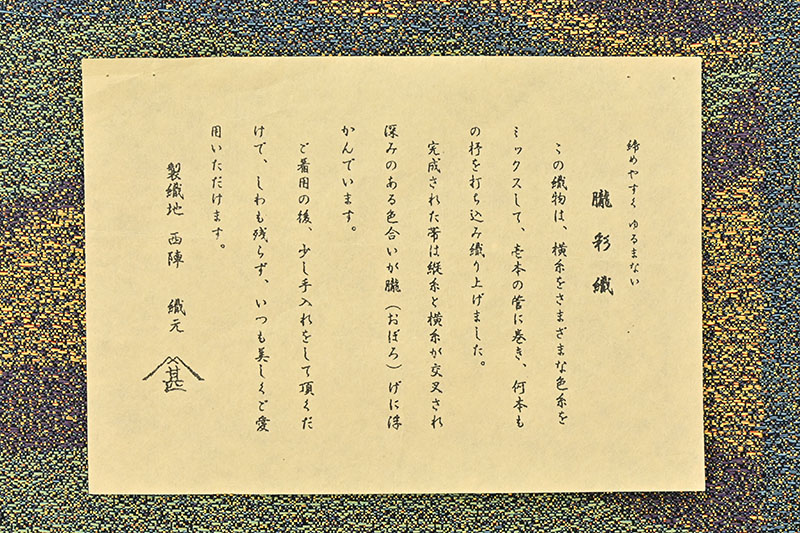 締めやすく ゆるまない
朧彩織
この織物は、横糸をさまざまな色糸を
ミックスして、壱本の管に巻き、何本も
の杼を打ち込み織り上げました。
完成された帯は縦糸と横糸が交叉され
深みのある色合いが朧（おぼろ）げに浮
かんでいます。
ご着用の後、少し手入れをして頂くだ
けで、しわも残らず、いつも美しくご愛
用いただけます。
製織地 西陣 織元
甚